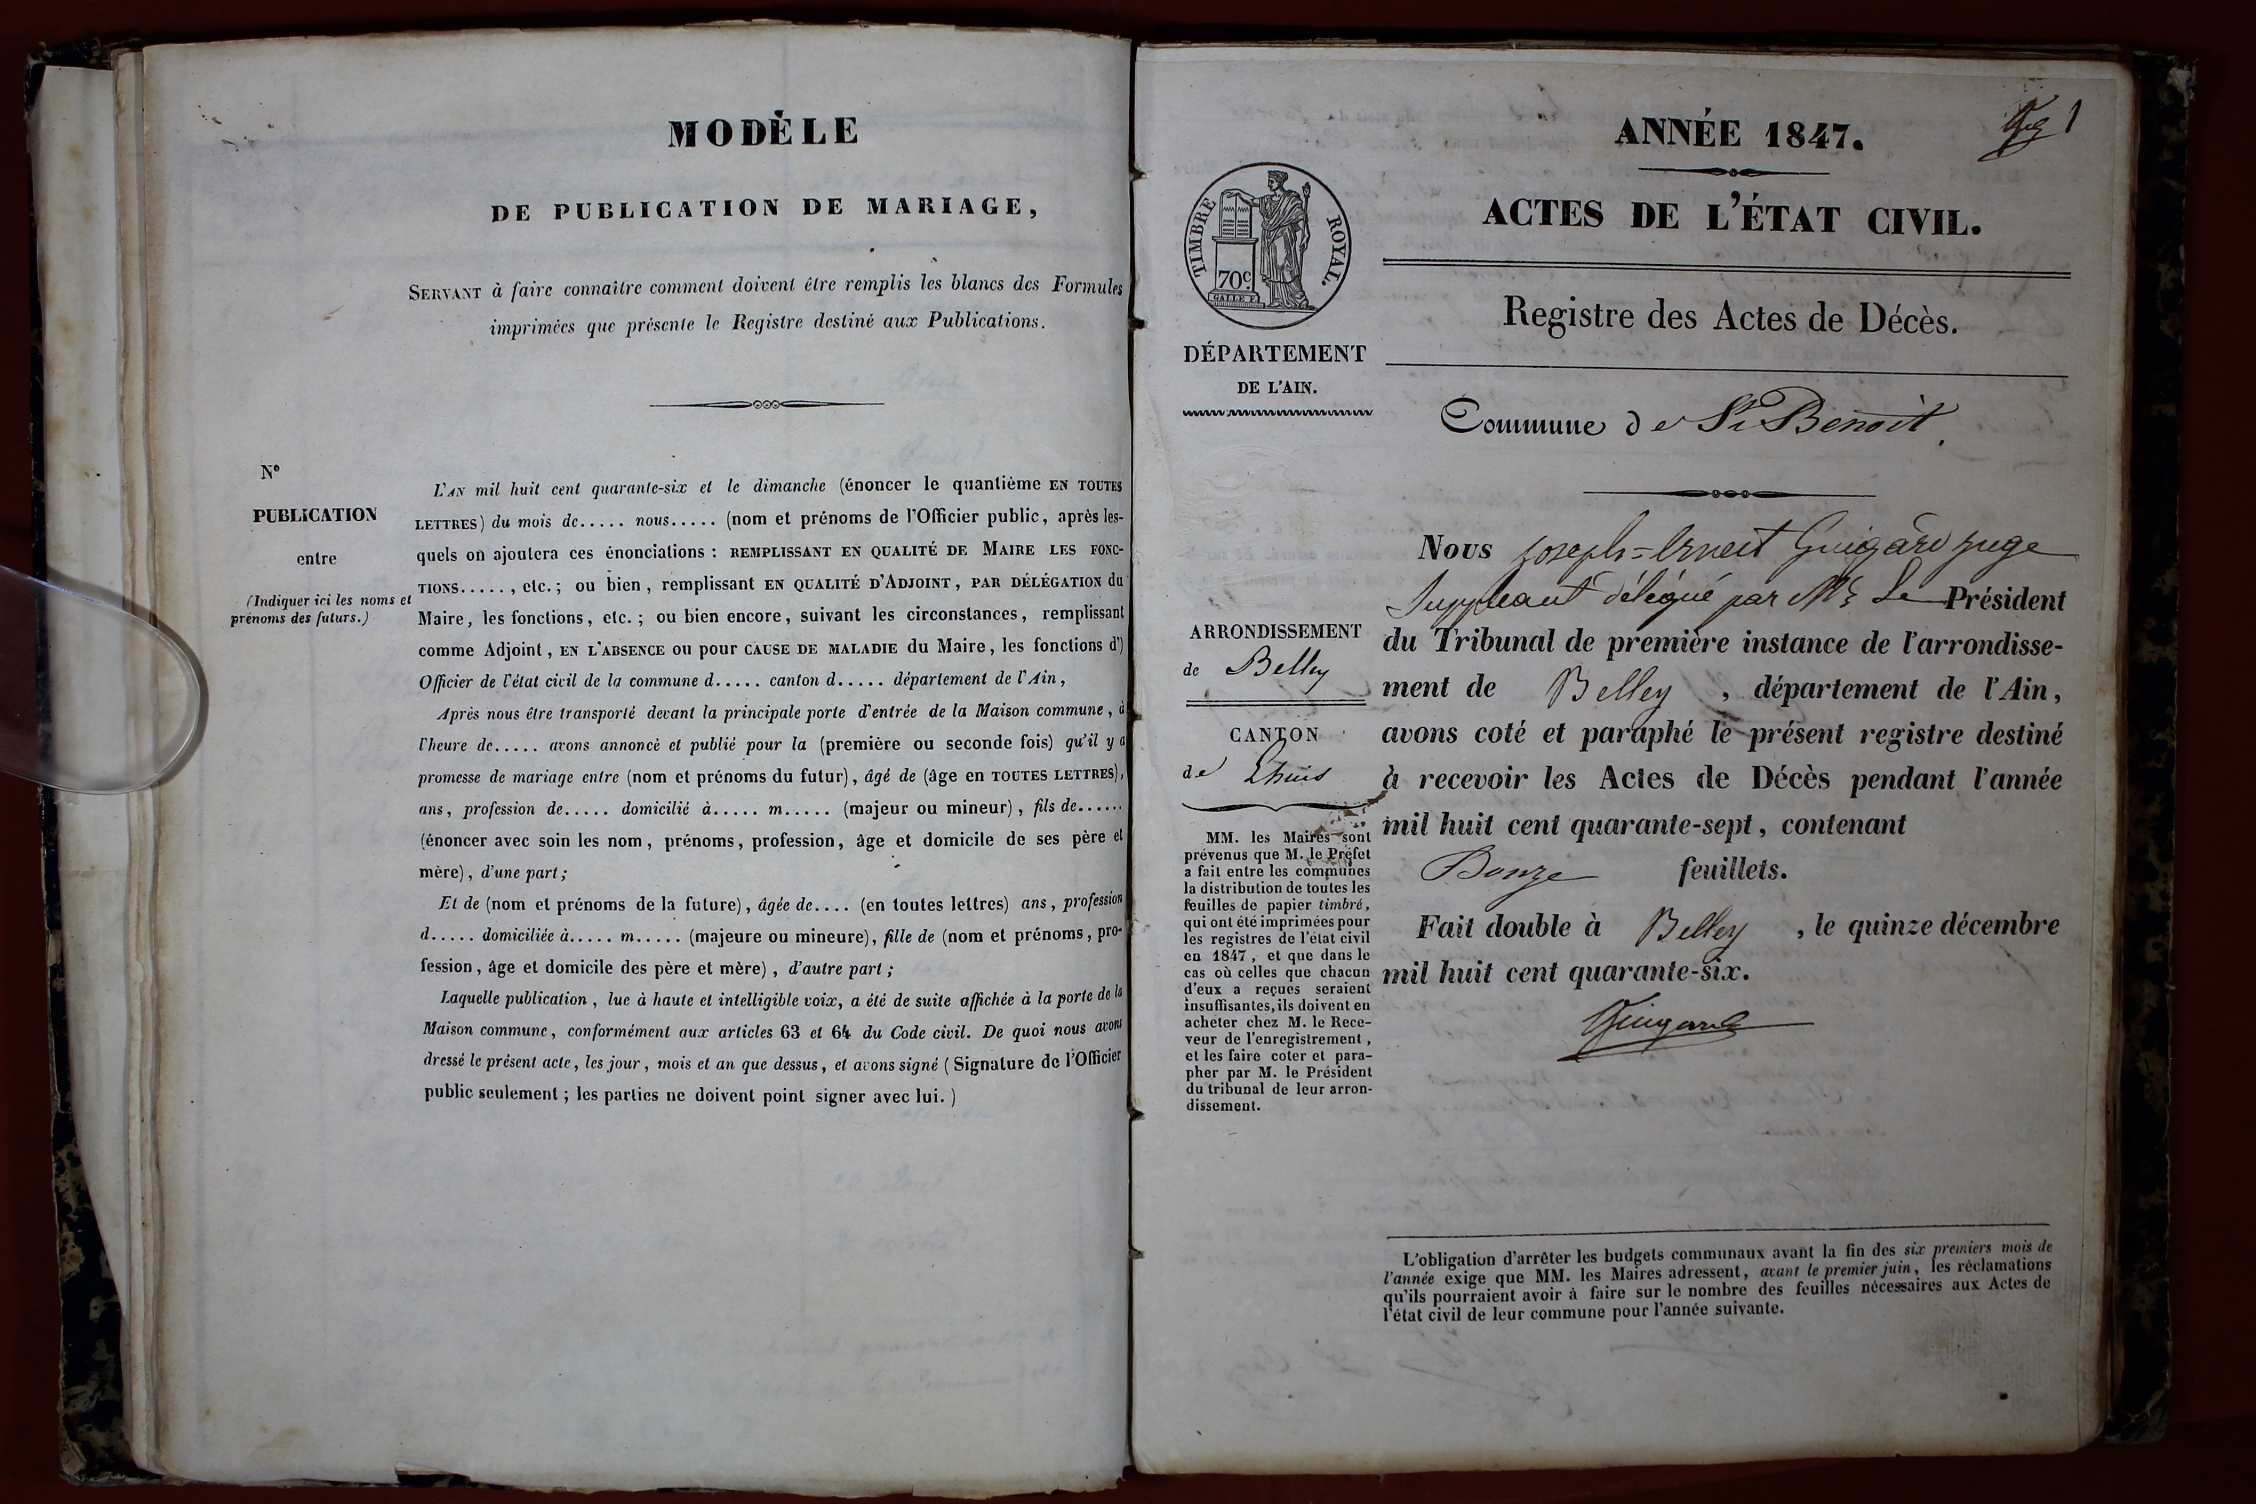 MODÈLE
DE PUBLICATION DE MARIAGE,
SERVANT à faire connaître comment doivent être remplis les blancs des Formules
imprimées que présente le Registre destiné aux Publications.
N°
PUBLICATION
entre
(Indiquer ici les noms et
prénoms des futurs.)
L'AN mil huit cent quarante-six et le dimanche (énoncer le quantième EN TOUTES
LETTRES) du mois de..... nous..... (nom et prénoms de l'Officier public, après les-
quels on ajoutera ces énonciations : REMPLISSANT EN QUALITÉ DE MAIRE LES FONC-
TIONS....., etc.; ou bien, remplissant EN QUALITÉ D'ADJOINT, PAR DÉLÉGATION du
Maire, les fonctions, etc.; ou bien encore, suivant les circonstances, remplissant
comme Adjoint, EN L'ABSENCE ou pour CAUSE DE MALADIE du Maire, les fonctions d')
Officier de l'état civil de la commune d..... canton d..... département de l'Ain,
Après nous être transporté devant la principale porte d'entrée de la Maison commune, à
l'heure de..... avons annoncé et publié pour la (première ou seconde fois) qu'il y a
promesse de mariage entre (nom et prénoms du futur), âgé de (âge en TOUTES LETTRES),
ans, profession de..... domicilié à..... m..... (majeur ou mineur), fils de......
(énoncer avec soin les nom, prénoms, profession, âge et domicile de ses père et
mère), d'une part;
Et de (nom et prénoms de la future), âgée de.... (en toutes lettres) ans, profession
d..... domiciliée à..... m..... (majeure ou mineure), fille de (nom et prénoms, pro-
fession, âge et domicile des père et mère), d'autre part;
Laquelle publication, lue à haute et intelligible voix, a été de suite affichée à la porte de la
Maison commune, conformément aux articles 63 et 64 du Code civil. De quoi nous avons
dressé le présent acte, les jour, mois et an que dessus, et avons signé (Signature de l'Officier
public seulement; les parties ne doivent point signer avec lui.)
1
ANNÉE 1847.
ACTES DE L'ÉTAT CIVIL.
TIMBRE ROYAL.
70c
GALLE F.
DÉPARTEMENT
DE L'AIN.
Registre des Actes de Décès.
Commune de St Benoit.
ARRONDISSEMENT
de Belley
CANTON
de Lhuis
MM. les Maires sont
prévenus que M. le Préfet
a fait entre les communes
la distribution de toutes les
feuilles de papier timbré,
qui ont été imprimées pour
les registres de l'état civil
en 1847, et que dans le
cas où celles que chacun
d'eux a reçues seraient
insuffisantes, ils doivent en
acheter chez M. le Rece-
veur de l'enregistrement,
et les faire coter et para-
pher par M. le Président
du tribunal de leur arron-
dissement.
Nous Joseph=Ernest Guigard juge
Suppleant délégué par Mr Le Président
du Tribunal de première instance de l'arrondisse-
ment de Belley, département de l'Ain,
avons coté et paraphé le présent registre destiné
à recevoir les Actes de Décès pendant l'année
mil huit cent quarante-sept, contenant
feuillets.
Fait double à Belley, le quinze décembre
mil huit cent quarante-six.
Guigard
L'obligation d'arrêter les budgets communaux avant la fin des six premiers mois de
l'année exige que MM. les Maires adressent, avant le premier juin, les réclamations
qu'ils pourraient avoir à faire sur le nombre des feuilles nécessaires aux Actes de
l'état civil de leur commune pour l'année suivante.